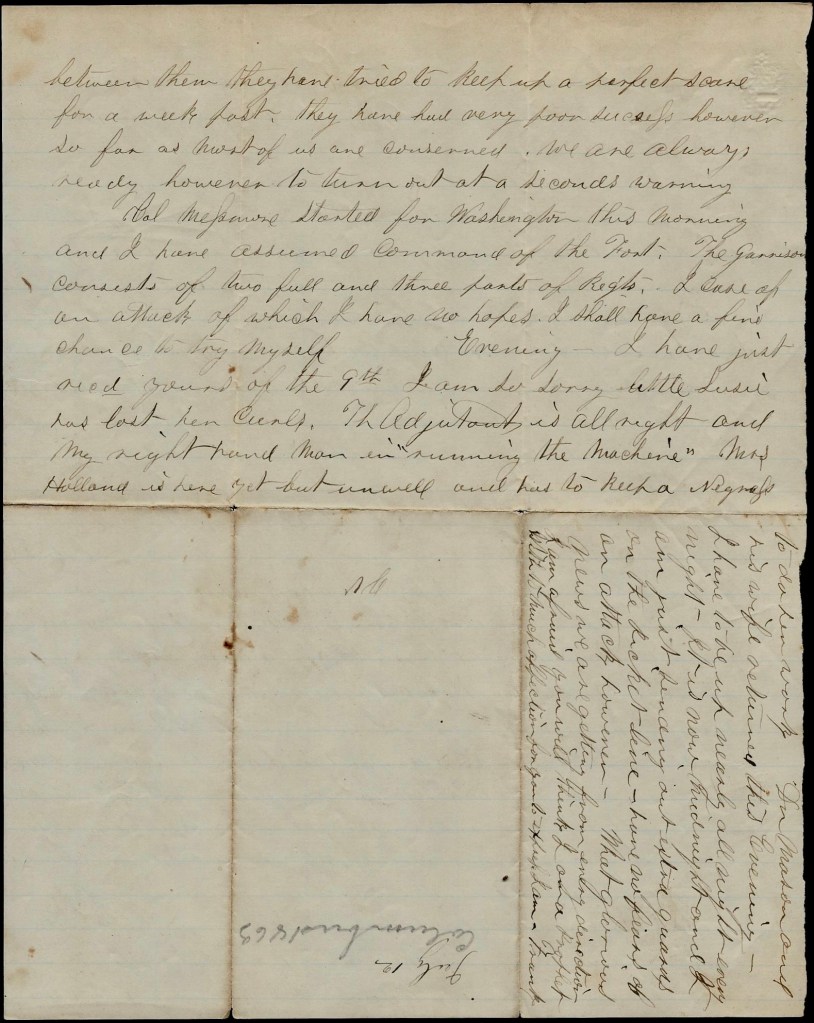 between them they have tried to keep up a perfect scare
for a week past. they have had very poor sucess however
so far as most of us are conserned. We are always
ready however to turn out at a seconds warning
Col Messmore started for Washington this morning
and I have assumed command of the Fort. The Garrison
consists of two full and three parts of Regts. I case of
an attack of which I have no hopes. I shall have a fine
chance to try myself Evening - I have just
recd yours of the 9th I am so sorry little Susie
has lost her Curls. Th Adjutant is all right and
my right hand man in "running the machine" Mrs
Holland is here yet but unwell and has to keep a Negress
to do her work Dr Mason and
his wife returned this Evening -
I have to be up nearly all night every
night - It is now Midnight and I
am just sending out extra guards
on the Picket line - have no fears of
an attack however - What glorious
news we are getting from every direction
I am afraid you will think I am a Prophet
With much affection for you to
Frank
July 12
Columbus 1863